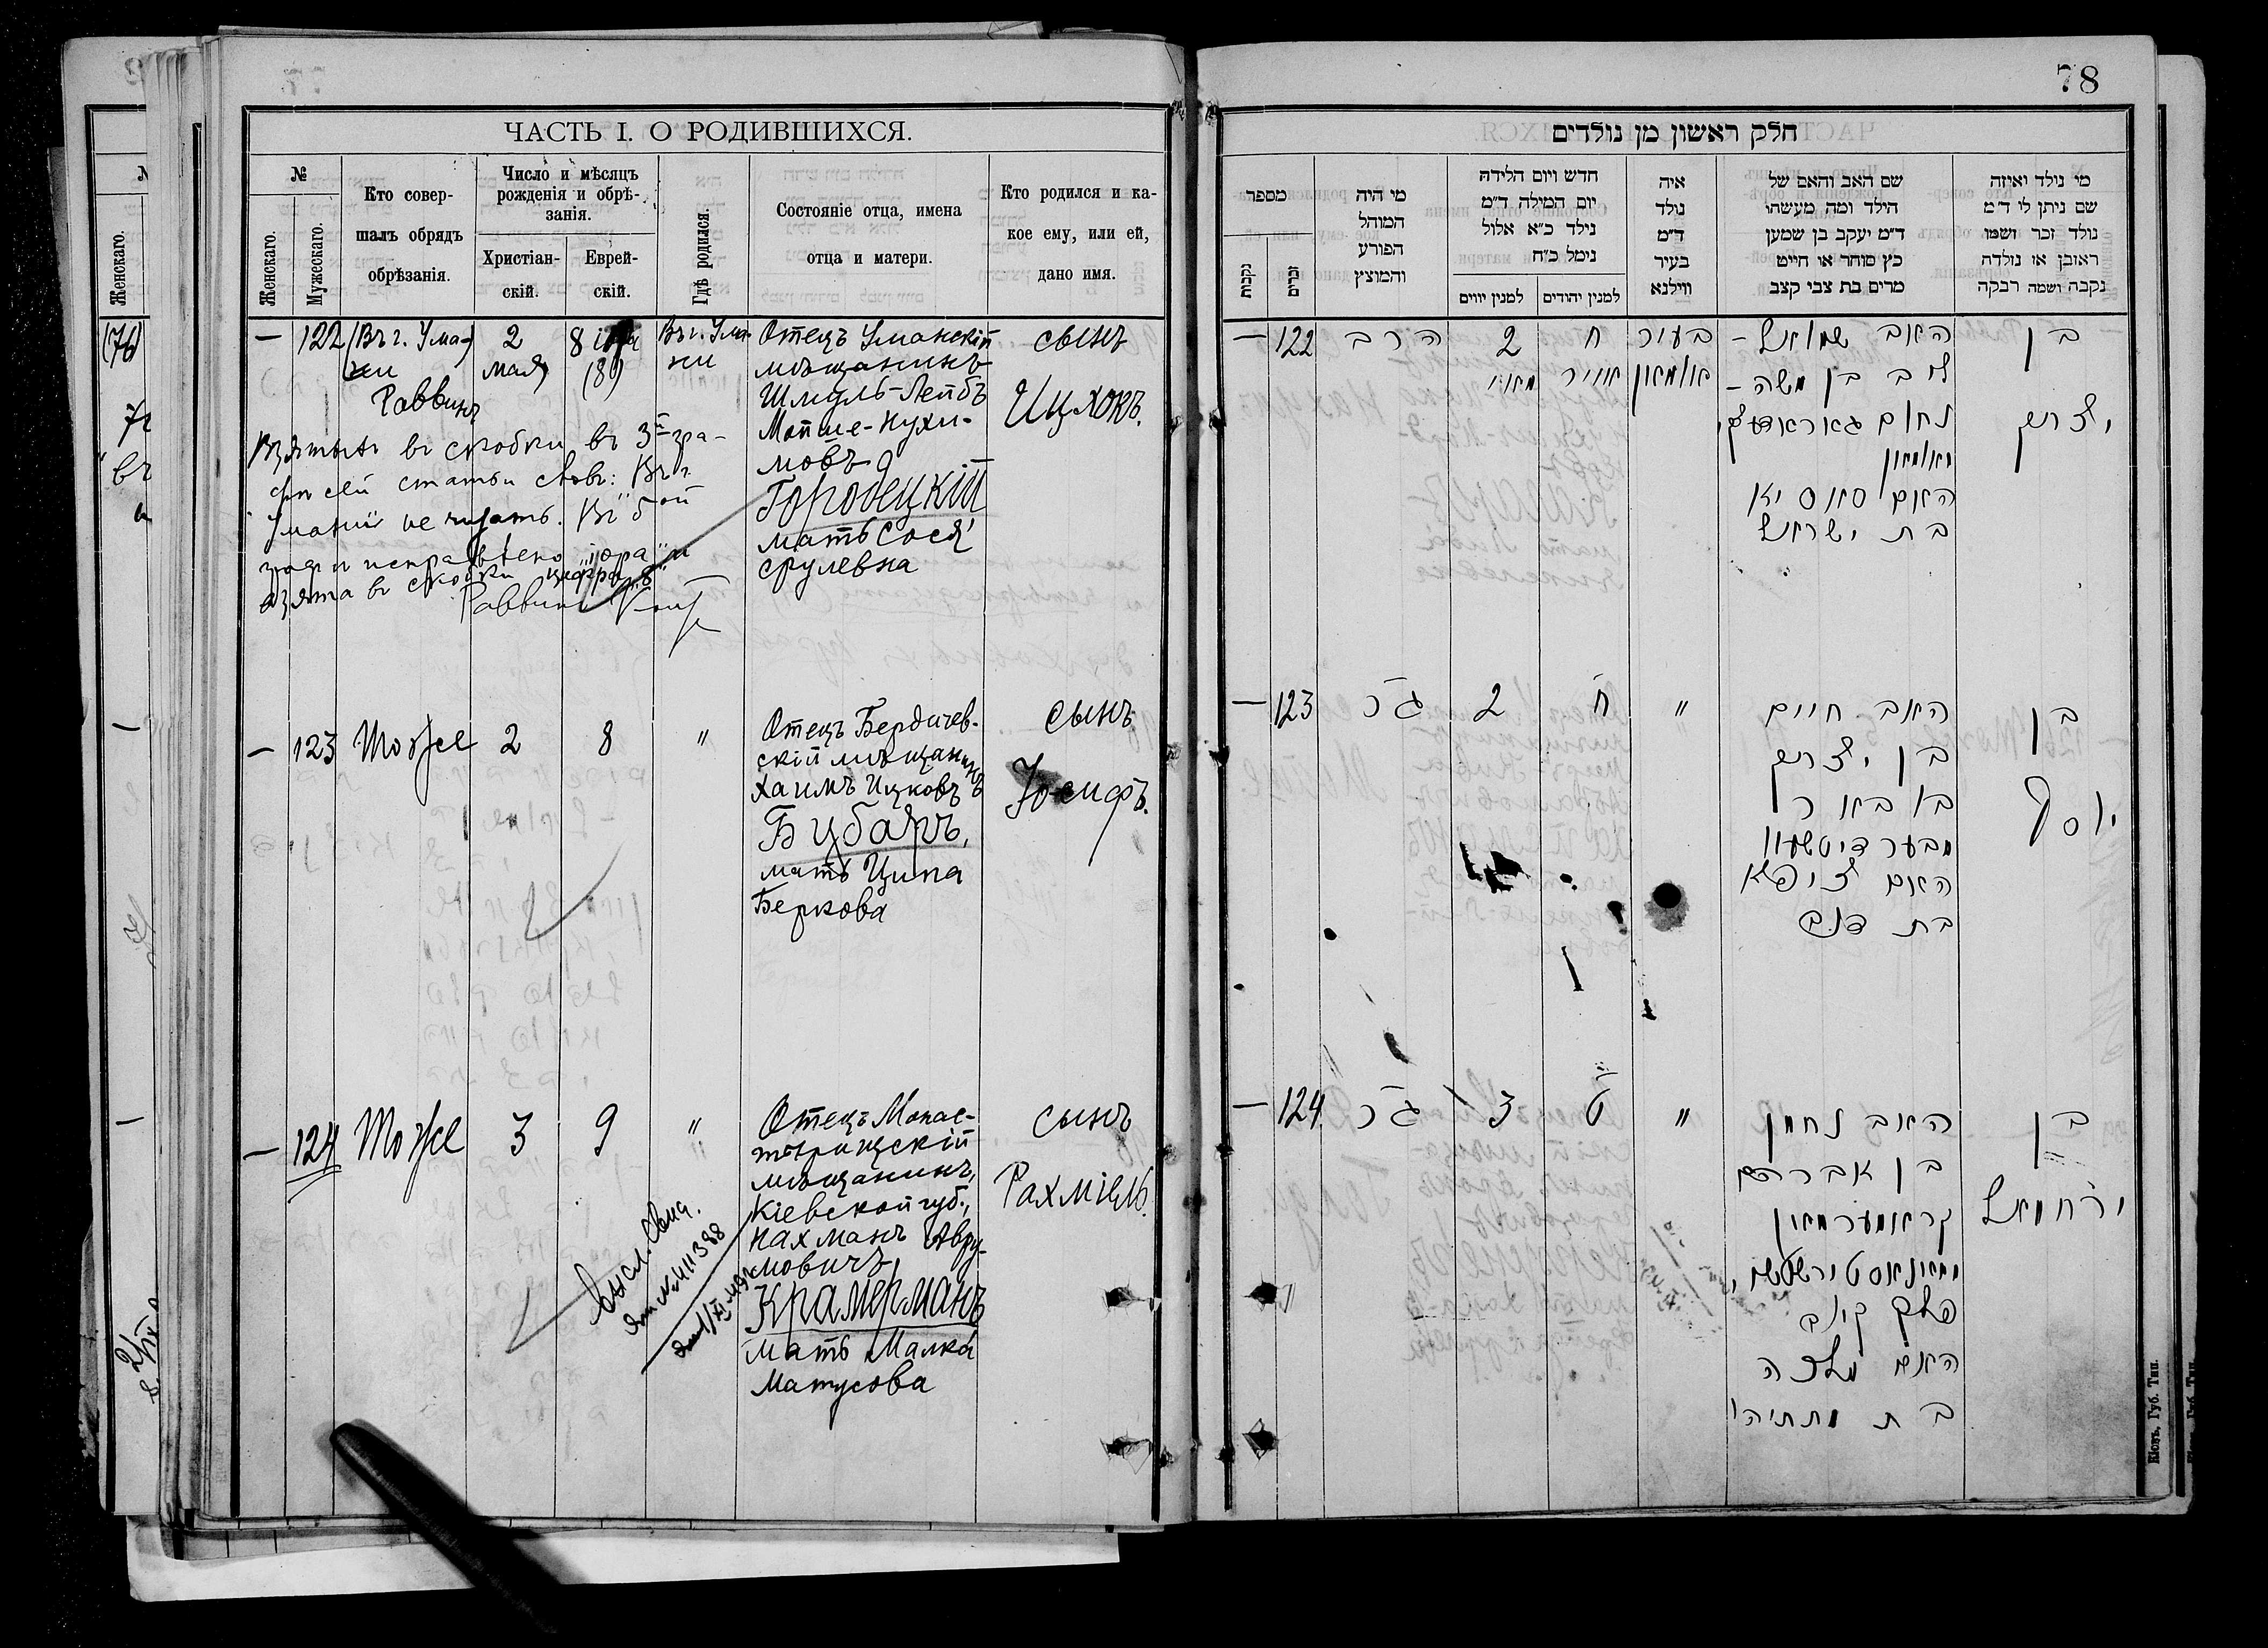 78
ЧАСТЬ I. О РОДИВШИХСЯ.
№
Женскаго.
Мужескаго.
Кто совер-
шалъ обрядъ
обрѣзанія.
Число и мѣсяцъ
рожденія и обрѣ-
занія.
Христіан-
скій.
Еврей-
скій.
Гдѣ родился.
Состояніе отца, имена
отца и матери.
Кто родился и ка-
кое ему, или ей,
дано имя.
— 122
(Въ г. Ума-
ни)
Раввинъ
2
мая
8
(8)
Въ г. Ума-
ни
Отецъ Уманскій
мѣщанинъ
Шмуль-Лейбъ
Мошме-Нухи-
мовъ
Городецкій
мать Сося
Срулевна
сынъ
Ицхокъ.
Взятыя въ скобки въ 3й гра-
фѣ сей статьи слова: Въ г.
Умани не читать. Въ 5ой
графѣ исправлено „іора" и
взята въ скобки цифра „8"
Раввинъ
— 123
Тоже
2
8
"
Отецъ Бердичев-
скій мѣщанинъ
Хаимъ Ицковъ
Бубаръ,
мать Ципа
Беркова
сынъ
Іосифъ.
— 124
Тоже
3
9
"
Отецъ Монас-
тырищскій
мѣщанинъ,
Кіевской губ.,
Нахманъ Авру-
мовичъ
Крамерманъ
мать Малка
Матусова
сынъ
Рахміель.
חלק ראשון מן נולדים
מספר
נקבות
זכרים
מי היה
המוהל
הפורע
והמוצץ
חדש ויום הלידה
יום המילה ד״מ
נילד כ״א אלול
נימל כ״ח
למנין יווים
למנין יהודים
איה
נולד
ד״מ
בעיר
ווילנא
שם האב והאם של
הילד ומה מעשהו
ד״מ יעקב בן שמען
כץ סוחר או חייט
מרים בת צבי קצב
מי נולד ואיזה
שם ניתן לו ד״מ
נולד זכר ושמו
ראובן או נולדה
נקבה ושמה רבקה
— 122
הרב
2
מאי
ח
אייר
בעיר
אומאן
האב שמואל-
ליב בן משה-
נחום גאראדעצקי
מאומאן
האם סאסיא
בת ישראל
בן
יצחק
— 123
הנ״ל
2
ח
"
האב חיים
בן יצחק
בובאר
מבערדיטשעוו
האם ציפא
בת דוב
בן
יוסף
— 124.
הנ״ל
3
ט
"
האב נחמן
בן אברהם
קראמערמאן
ממאנאסטירשטשע
פלך קיוב
האם מלכה
בת מתתיהו
בן
ירחמיאל
Кіевъ, Губ. Тип.